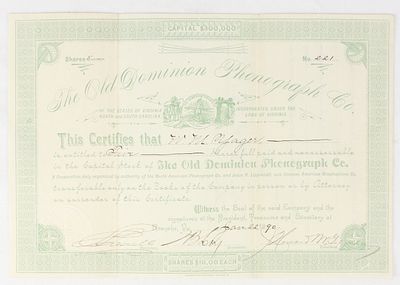 CAPITAL $100,000
Shares
No. 221
The Old Dominion Phonograph Co.
OF THE STATES OF VIRGINIA
NORTH AND SOUTH CAROLINA
INCORPORATED UNDER THE
LAWS OF VIRGINIA
This Certifies that
is entitled to Five Shares full paid and unassessable
in the Capital stock of The Old Dominion Phonograph Co.
A Corporation duly organized by authority of the North American Phonograph Co. and Jesse H. Lippincott
transferable only on the Books of the Company in person or by Attorney
on surrender of this Certificate.
Witness the Seal of the said Company and the
signatures of the President, Treasurer and Secretary at
Roanoke, Va. 1890
SHARES $10.00 EACH